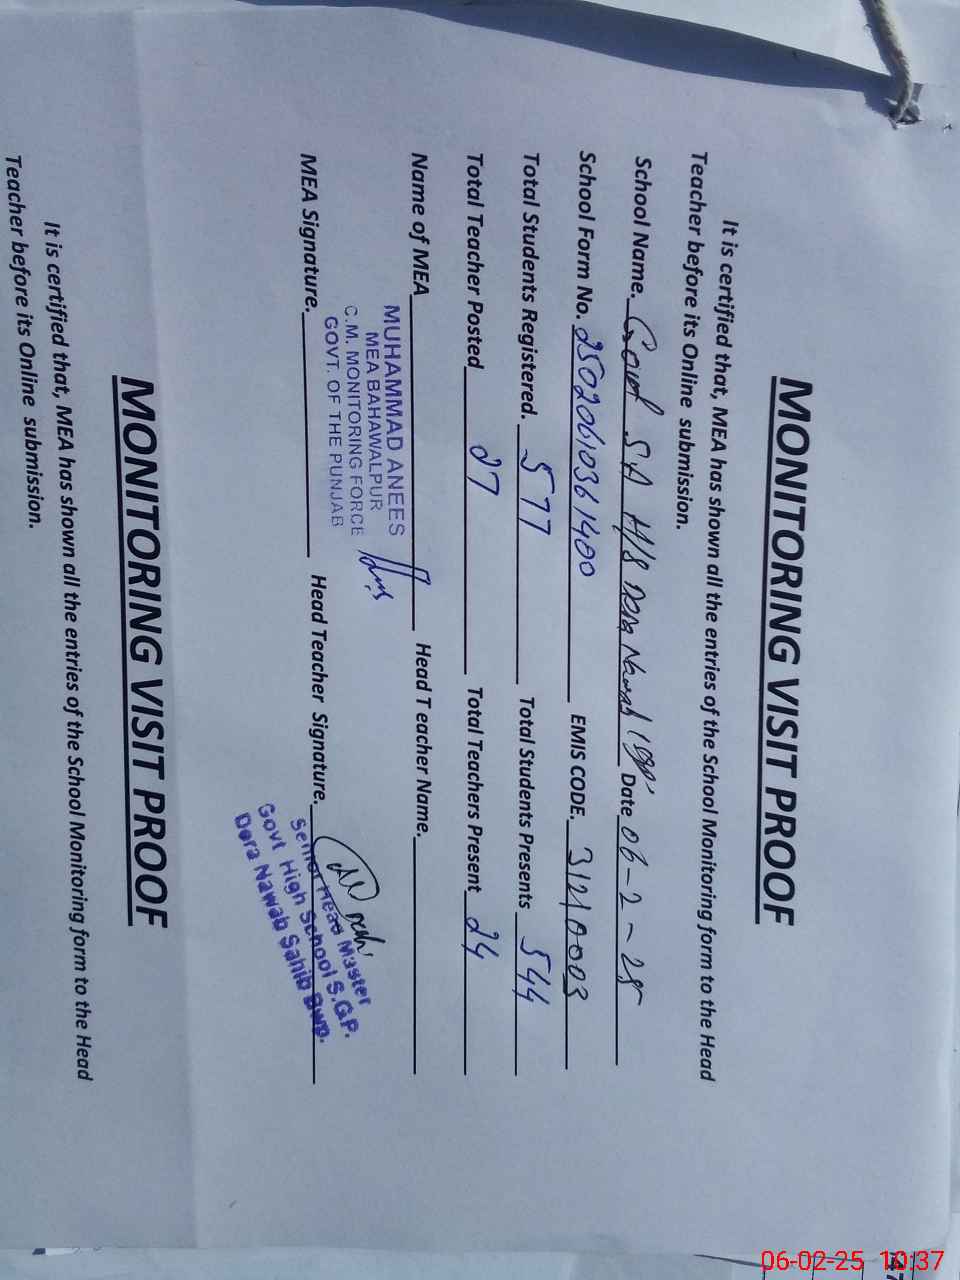 MONITORING VISIT PROOF
It is certified that, MEA has shown all the entries of the School Monitoring form to the Head
Teacher before its Online submission.
School Name. Govt SA H/S Dera Nawab Date 06-2-25
School Form No. 25020610361400 EMIS CODE. 31210003
Total Students Registered. 577 Total Students Presents 544
Total Teacher Posted 27 Total Teachers Present 24
Name of MEA Head Teacher Name.
MUHAMMAD ANEES
MEA BAHAWALPUR
C.M. MONITORING FORCE
GOVT. OF THE PUNJAB
MEA Signature. Head Teacher Signature.
Senior Head Master
Govt High School S.G.P.
Dera Nawab Sahib Bwp.
MONITORING VISIT PROOF
It is certified that, MEA has shown all the entries of the School Monitoring form to the Head
Teacher before its Online submission.
06-02-25 10:37